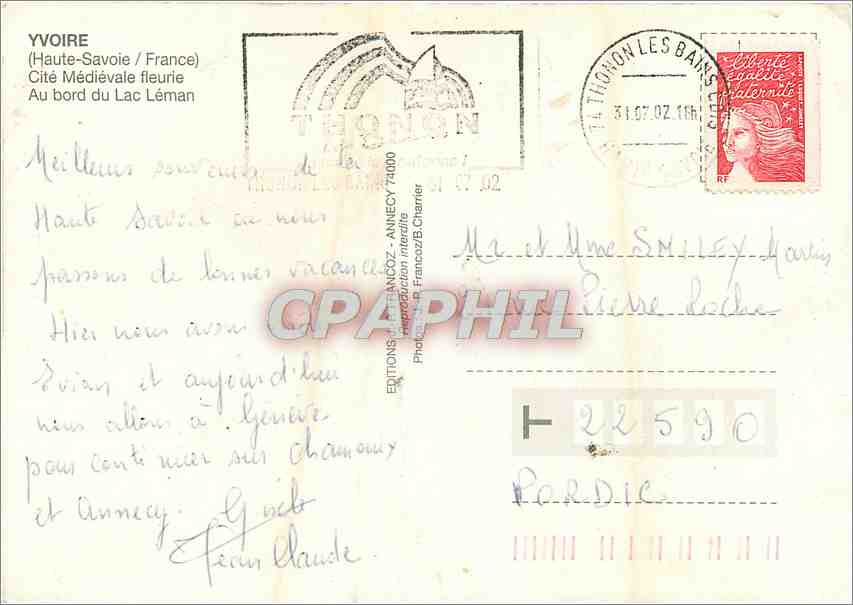 YVOIRE
(Haute-Savoie / France)
Cité Médiévale fleurie
Au bord du Lac Léman
THONON
THONON LES BAINS
31 07 02
74 THONON LES BAINS
31.07.02.16h
liberté
égalité
fraternité
RF
Meilleurs souvenirs de la
Haute Savoie où nous
passons de bonnes vacances
Hier nous avons
Evian et aujourd'hui
nous allons à Genève
pour continuer sur Chamonix
et Annecy.
Jean Claude.
EDITIONS J-P. FRANCOZ - ANNECY 74000
Reproduction interdite
Photos J-P. Francoz/B.Charrier
CPAPHIL
Mr et Mme SMILEY Martin
Pierre Loche
T 22590
PORDIC